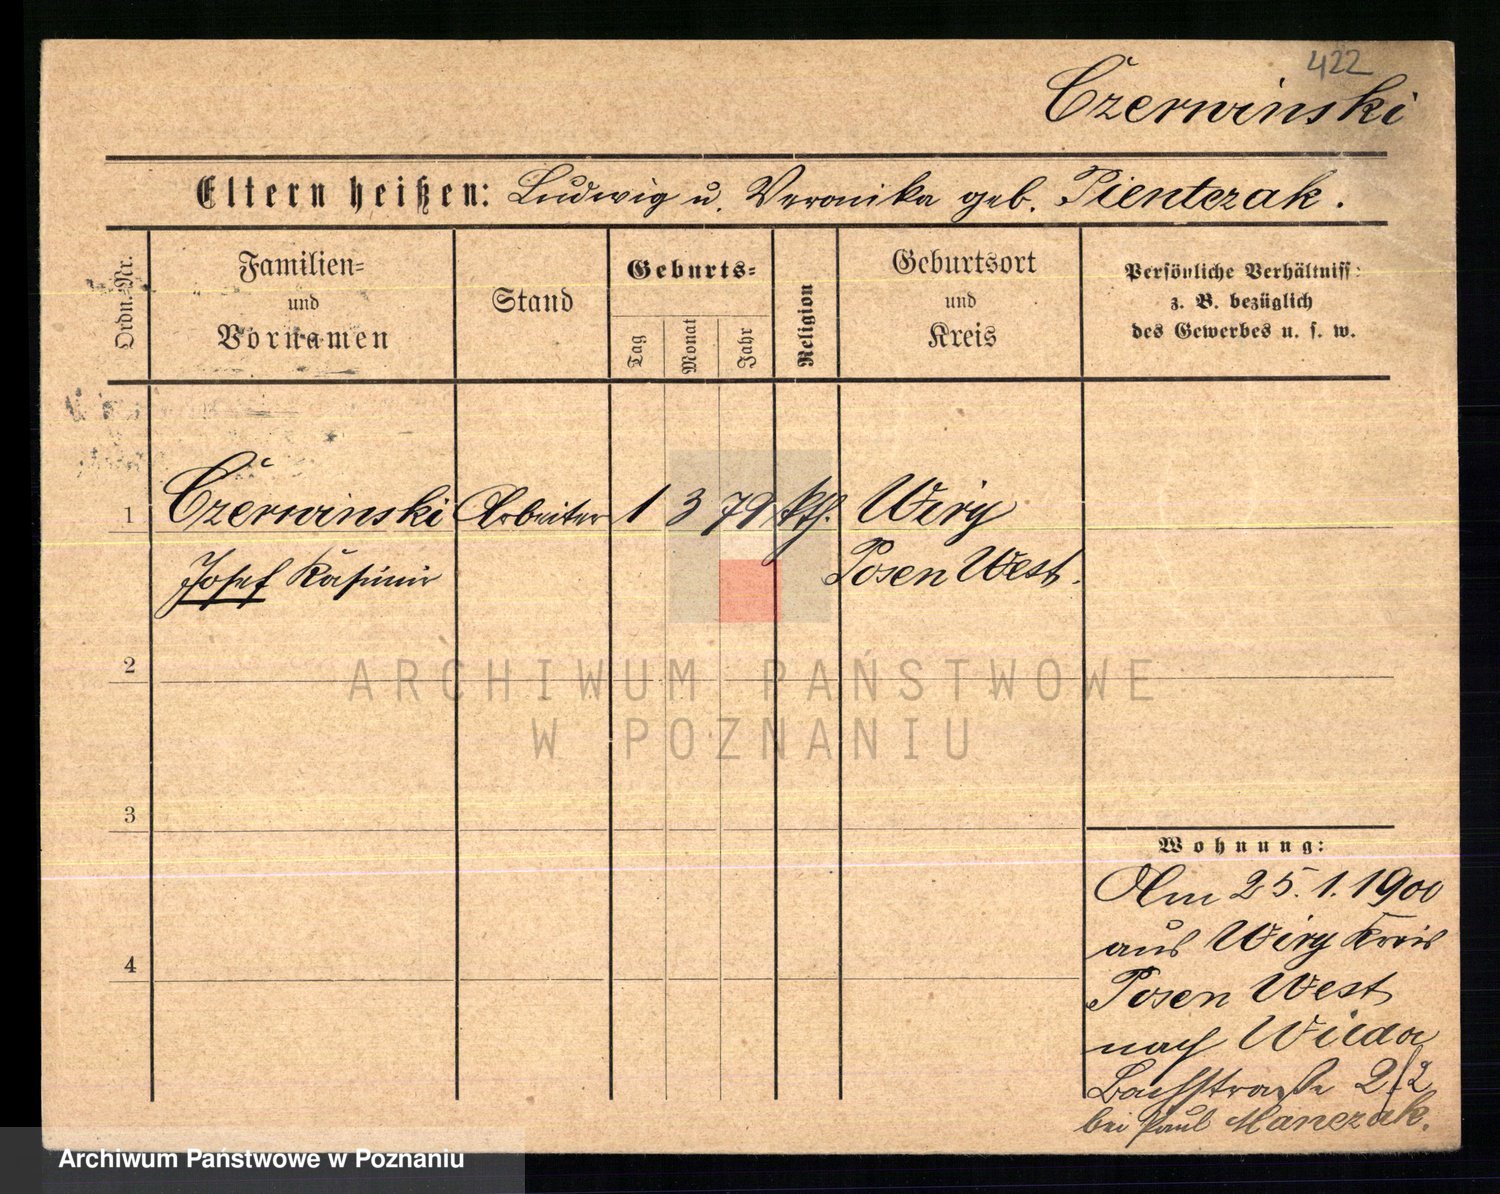 422
Czerwinski
Eltern heißen: Ludwig u. Veronika geb. Pientczak.
Ordn. Nr.
Familien=
und
Vornamen
Stand
Geburts=
Tag
Monat
Jahr
Religion
Geburtsort
und
Kreis
Persönliche Verhältniss:
z. B. bezüglich
des Gewerbes u. s. w.
1 Czerwinski Arbeiter 1 3 79 kth. Wiry
Josef Kasimir Posen West.
2
ARCHIWUM PAŃSTWOWE
W POZNANIU
3
Wohnung:
Am 25.1.1900
aus Wiry Kreis
4
Posen West
nach Wilda
Bachstraße 2/2
bei Paul Manczak.
Archiwum Państwowe w Poznaniu